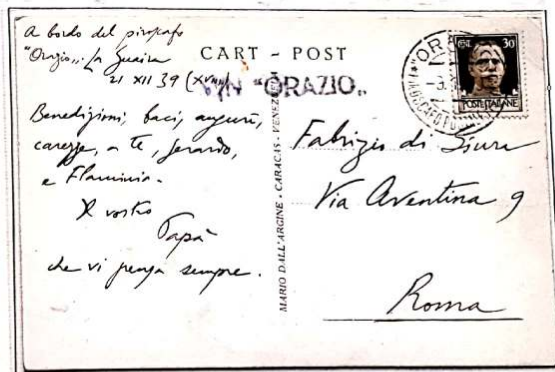 A bordo del piroscafo
"Orazio": La Guaira
21 XII 39 (XVIII)
CART - POST
M/N "ORAZIO"
Benedizioni, baci, auguri,
carezze, a te, Gerardo,
e Flaminia.
Il vostro
Papà
che vi pensa sempre.
MARIO DALL'ARGINE - CARACAS - VENEZUELA
ORA
CENT. 30
POSTE ITALIANE
Fabrizio di
Via Aventina 9
Roma